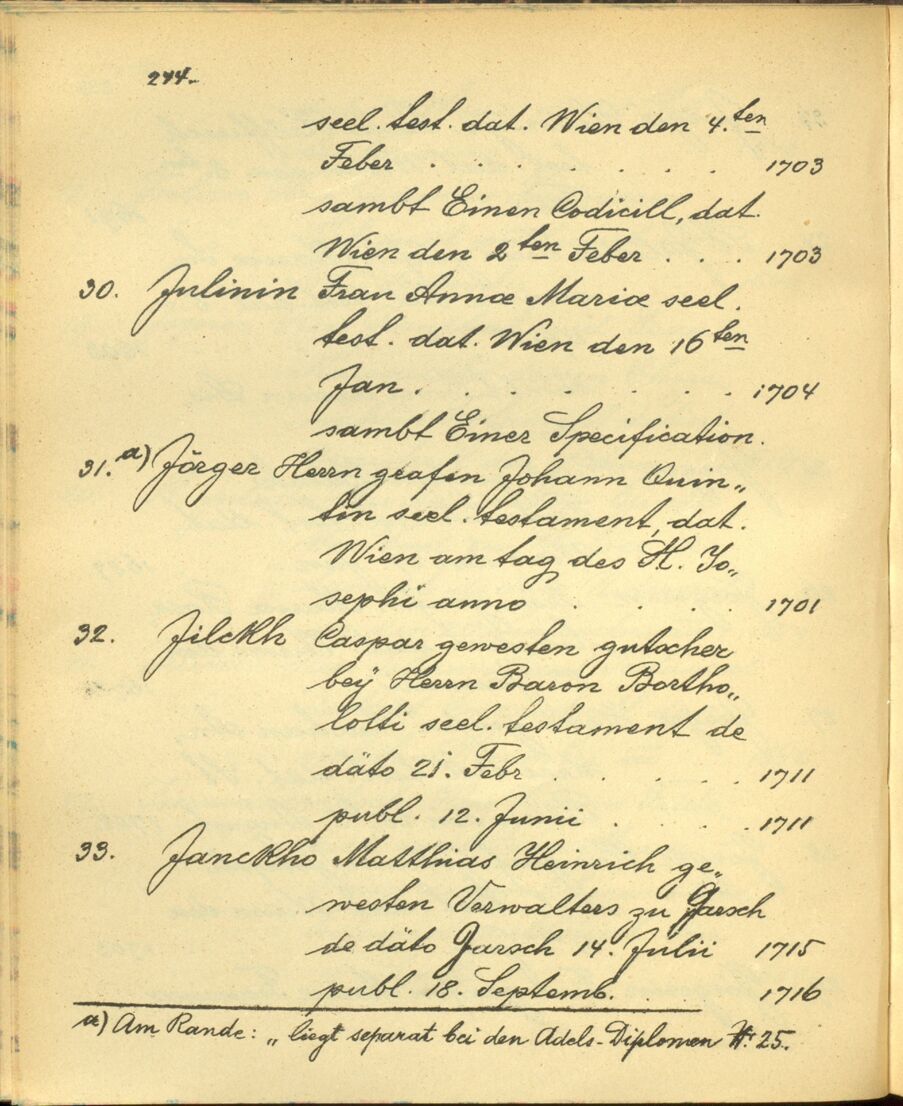 244.
seel. test. dat. Wien den 4.ten
Feber . . . . . . . 1703
sambt Einen Codicill, dat.
Wien den 2ten Feber . . . 1703
30. Julinin Frau Annæ Mariæ seel.
test. dat. Wien den 16ten
Jan . . . . . . . . 1704
sambt Einer Specification.
31. a) Jörger Herrn grafen Johann Quin„
tin seel. testament, dat.
Wien am tag des H. Jo„
sephi anno . . . . . 1701
32. Jilckh Caspar gewesten gutscher
beÿ Herrn Baron Bortho„
lotti seel. testament de
däto 21. Febr . . . . . 1711
publ. 12. Junii . . . . 1711
33. Janckho Matthias Heinrich ge„
westen Verwalters zu Garsch
de däto Garsch 14. Julii 1715
publ. 18. Septemb. . . . 1716
a) Am Rande: „liegt separat bei den Adels-Diplomen Nr. 25.